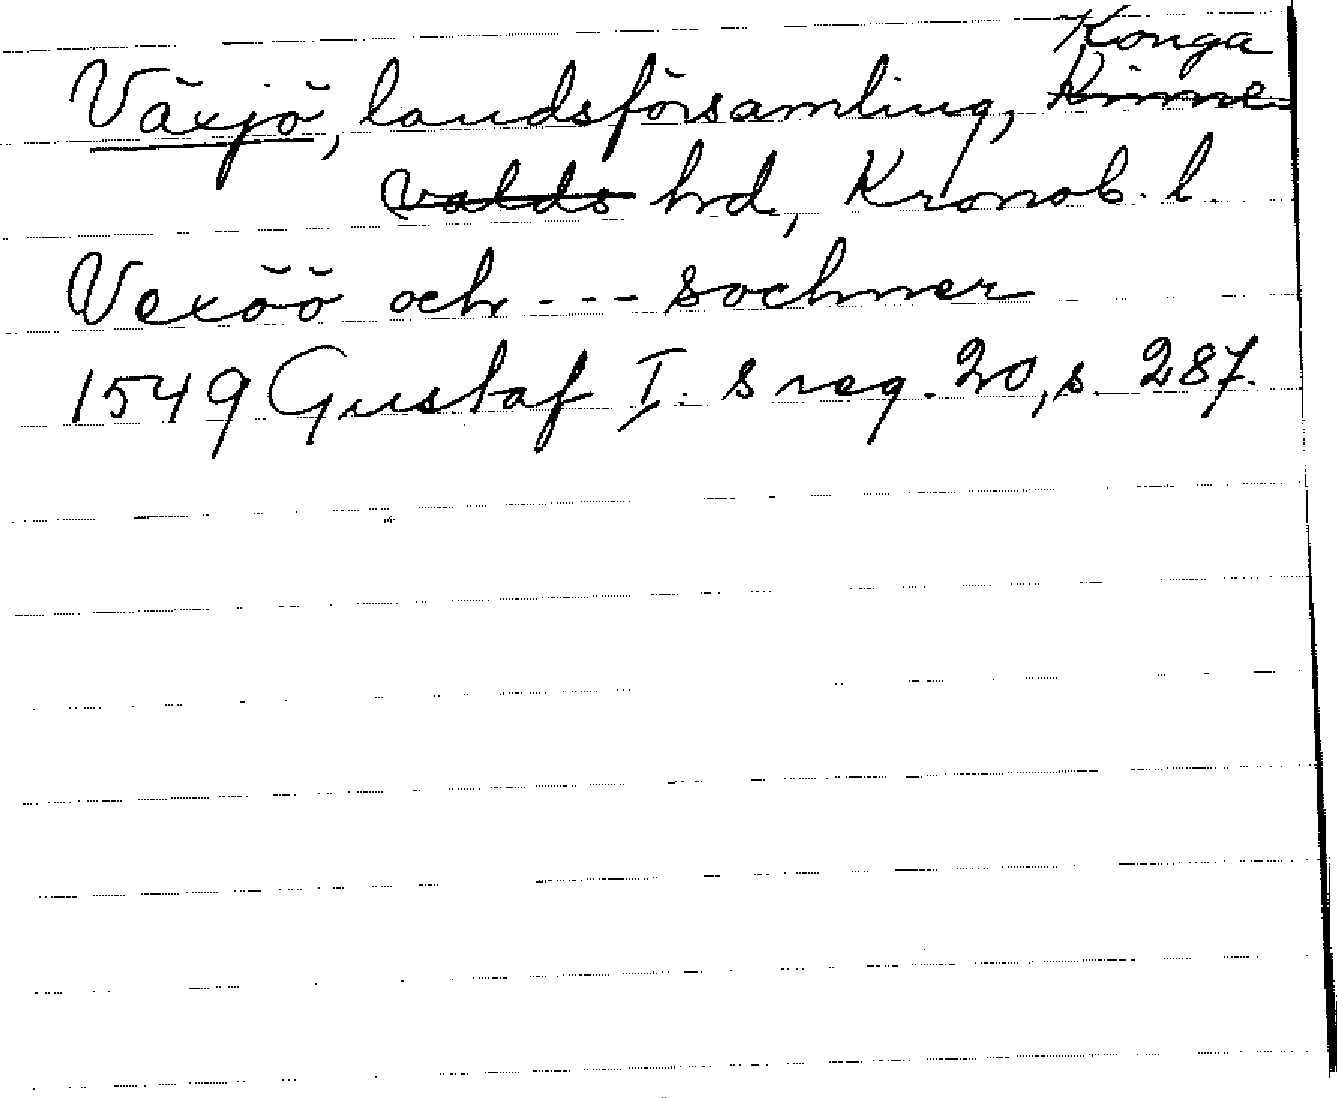 Konga
Växjö, landsförsamling, Kinne
valds hd, Kronob. l.
Vexöö och --- sochner
1549 Gustaf I. s reg. 20, s. 287.